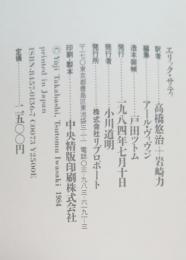 エリック・サティ
訳者 高橋悠治＋岩崎力
編集 アール・ヴィヴァン
造本装幀 戸田ツトム
発行 一九八四年七月十日
発行者 小川道明
発行所 株式会社リブロポート
印刷・製本 中央精版印刷株式会社
© Yuji Takahashi, Tsutomu Iwasaki 1984.
printed in Japan.
ISBN4-8457-0136-7 C0073 ¥2500E
定価 二、五〇〇円